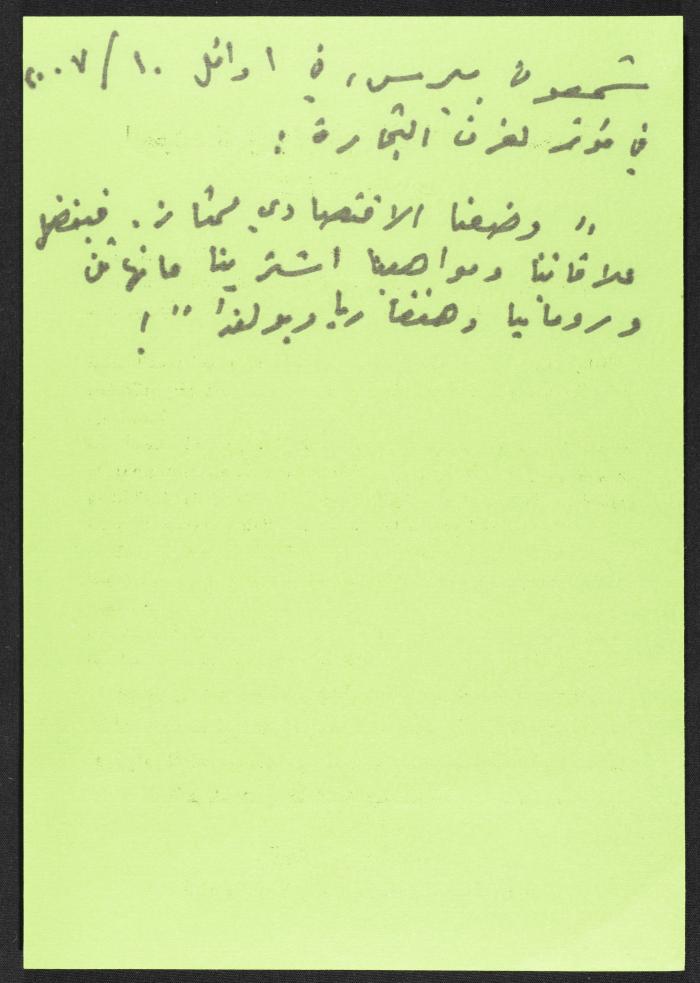 شمعون بيرس، في اوائل ١٠/٢٠٠٧
في مؤتمر لغرف التجارة :
" وضعنا الاقتصادي ممتاز. فبفضل
علاقاتنا ومواهبنا اشترينا مانهاتن
ورومانيا وهنغاريا وبولندا " !